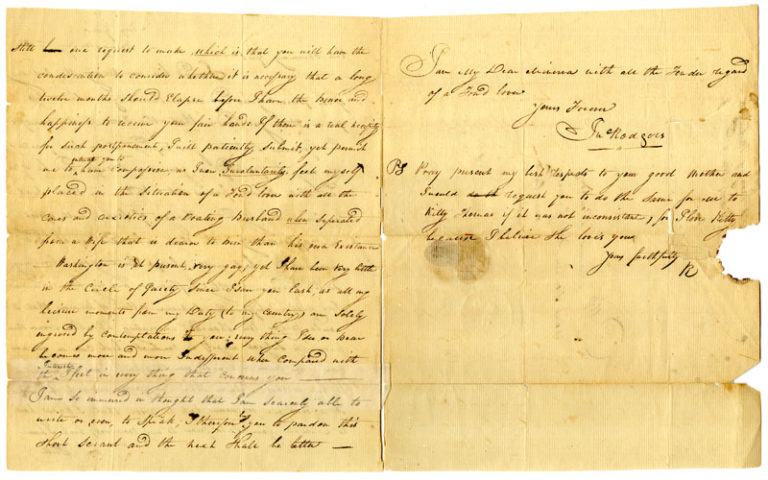 still one request to make, which is, that you will have the
condesention to consider whether it is necessary that a long
twelve months should Elapse before I have the honor and
happiness to receive your fair hand. If there is a real necessity
for such postponement, I will patiently submit, yet permit
intreat you to
me to have compassion, as I now Involuntarily feel myself
placed in the situation of a Fond lover with all the
cares and anxieties of a Doating Husband when seperated
from a Wife that is dearer to him than his own Existance
Washington is at present, very gay, yet I have been very little
in the Circle of Gaiety since I seen you last, as all my
leisure moments from my Duty (to my country) are Solely
ingrosed by contemplations to you; every thing I see or hear
becomes more and more Indifferent when compared with
Interest
the I feel in every thing that concerns you
I am so immersed in thought that I am scarcely able to
write or even, to speak, I therefore beg you to pardon this
short and the next shall be better
I am My Dear Minerva with all the Tender regard
of a Fond lover
Yours Forever
Jno Rodgers
PS Pray present my best respects to your good Mother and
I would request you to do the same for me to
Kitty if it was not inconsistent, for I love Kitty
because I believe she loves you
Yours faithfully
R